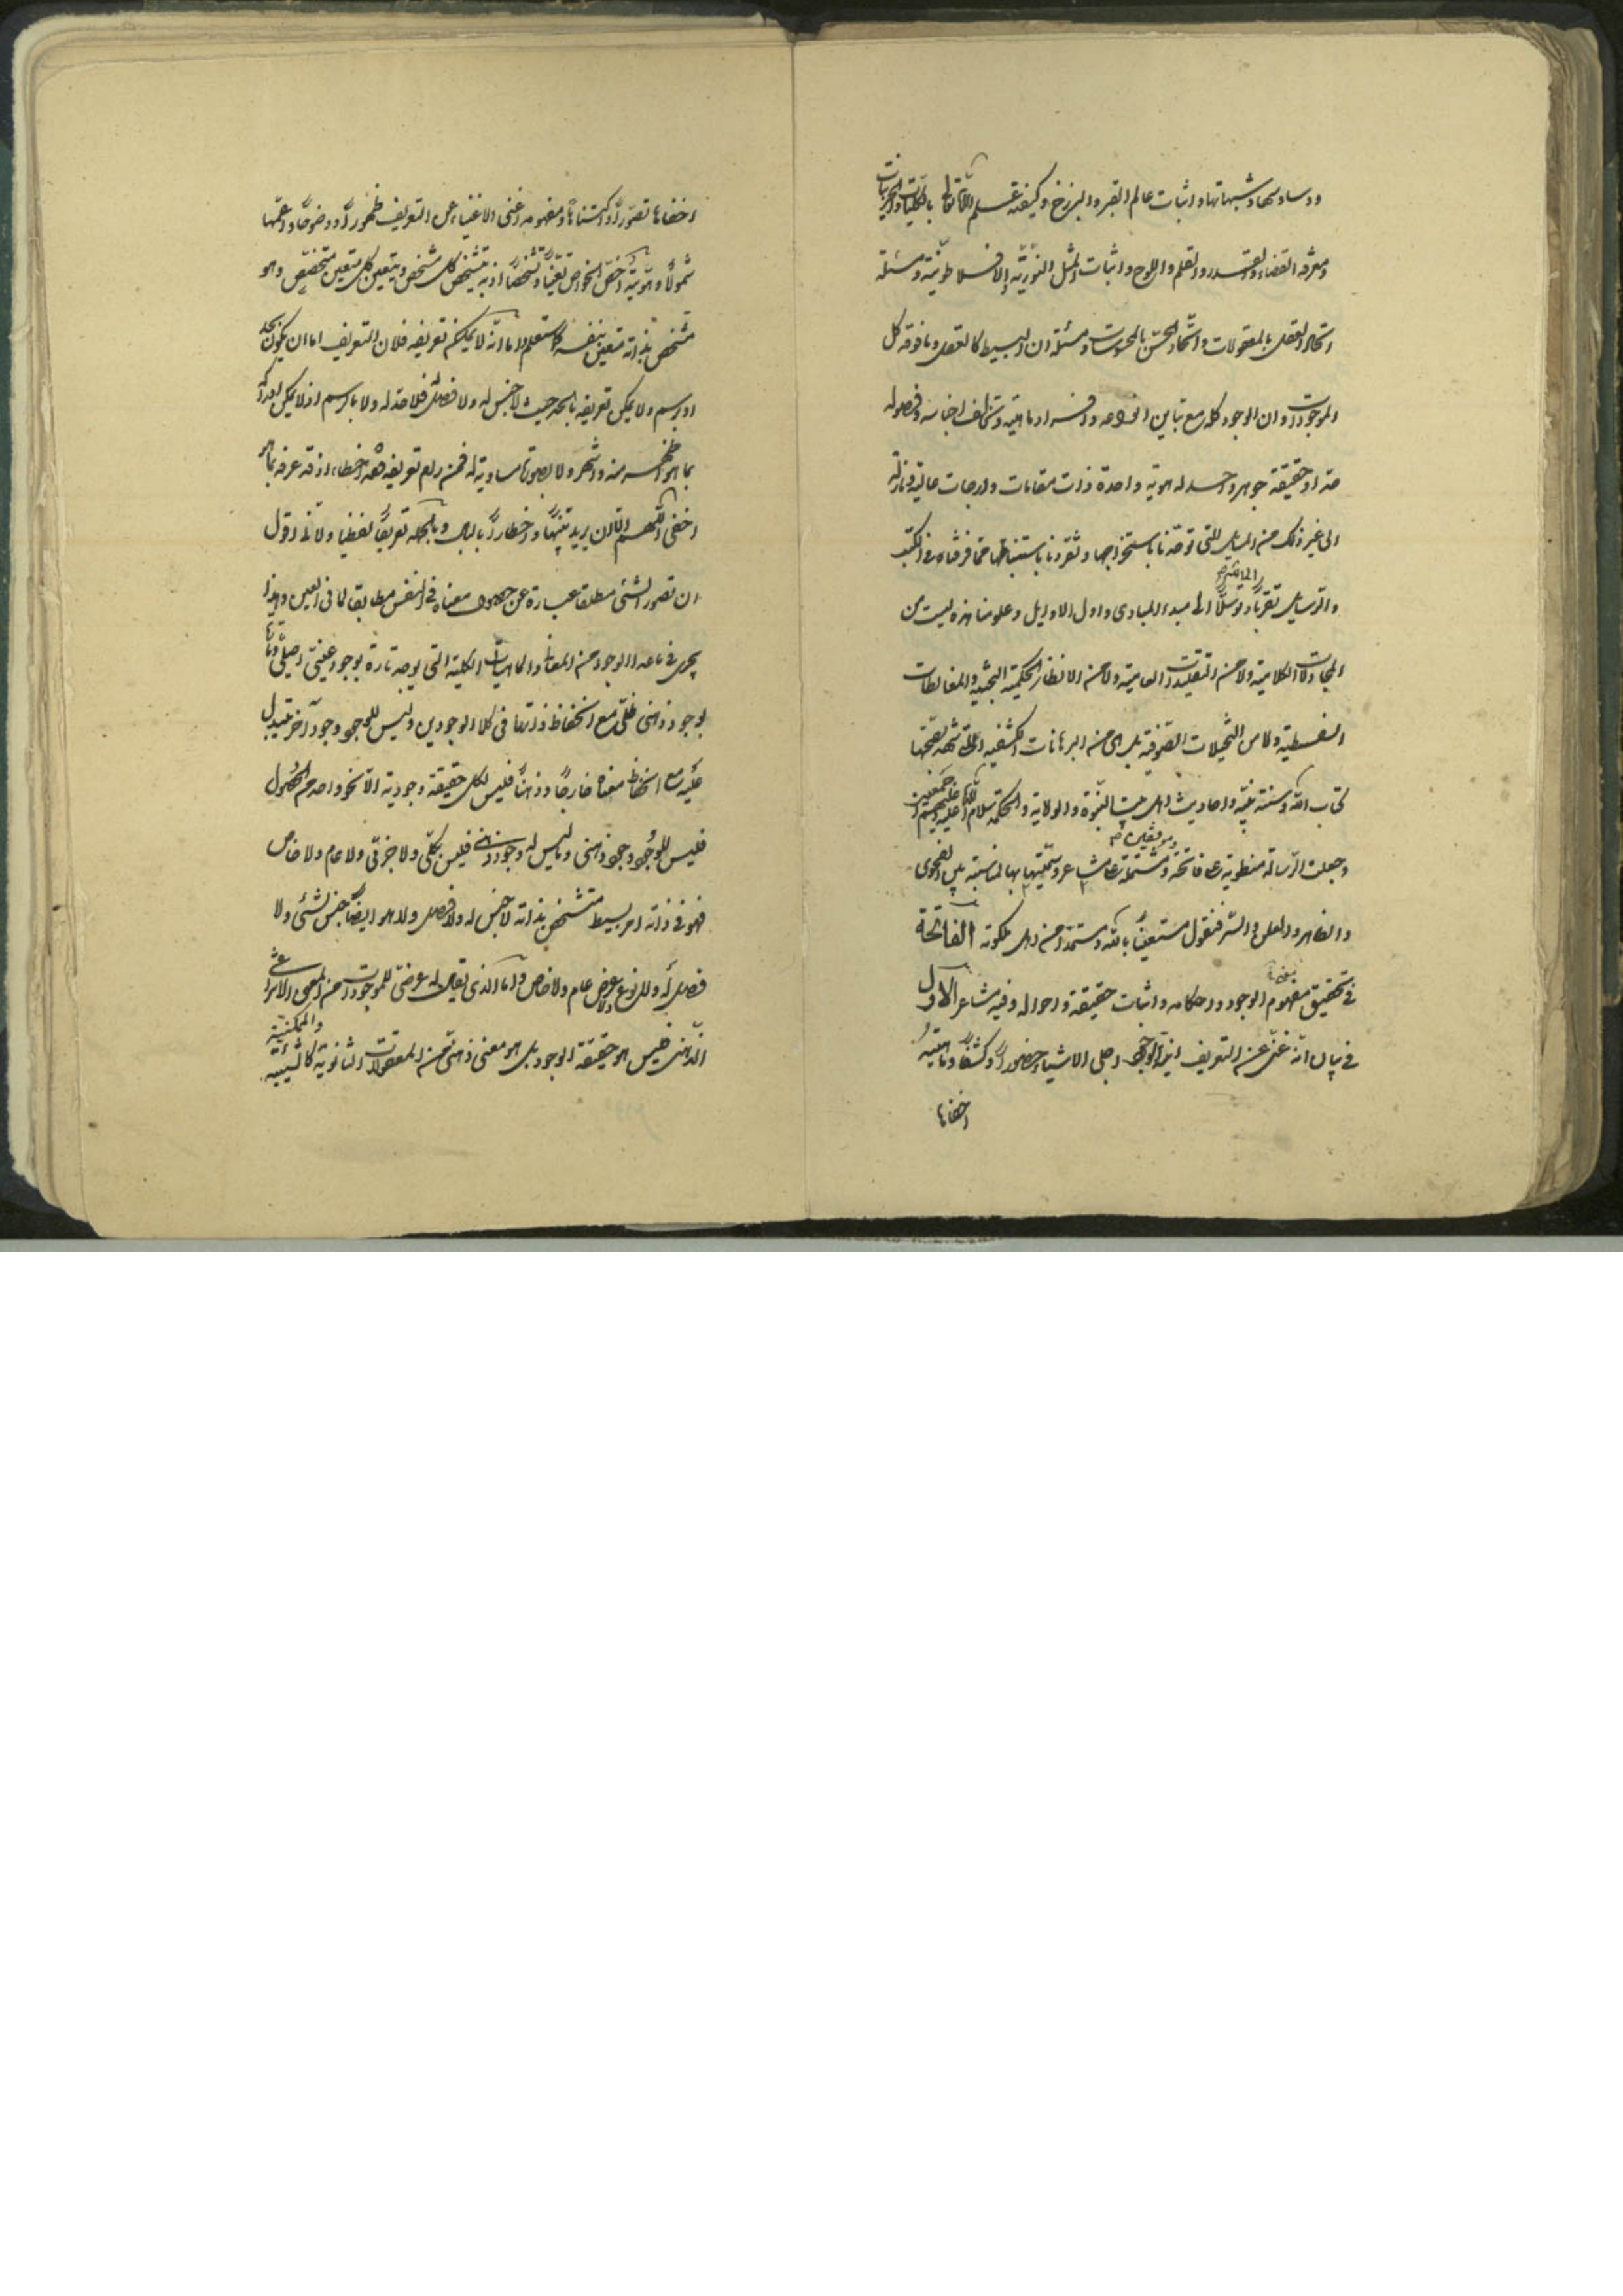 ووساوسها وشبهاتها واثبات عالم القبر والبرزخ وكيفية علم الله تعالى بالكليات والجزئيات
ومعرفة القضاء والقدر والقلم واللوح واثبات المثل النورية الافلاطونية ومسئلة
اتحاد العقل بالمعقولات واتحاد الحس بالمحسوسات ومسئلة ان البسيط كالعقل وما فوقه كل
الموجودات وان الوجود كله مع تباين انواعه وافراده ماهية وتخالف اجناسه وفصوله
حدا وحقيقة جوهر واحد له هوية واحدة ذات مقامات ودرجات عالية ونازلة
الى غير ذلك من المسايل التى توحدنا باستخراجها وتفردنا باستنباطها مما فرقناه فى الكتب
والرسايل تقربا وتوسلا الى مبدء المبادى واول الاوايل وعلومنا هذه ليست من
المجادلات الكلامية ولا من التقليدات العامية ولا من الانظار الحكمية البحثية والمغالطات
السفسطية ولا من التخيلات الصوفية بل هى من البرهانات الكشفية التى شهد بصحتها
كتاب الله وسنة نبيه واحاديث اهل بيت النبوة والولاية والحكمة سلام الله عليه وعليهم اجمعين
وجعلت الرسالة منطوية على فاتحة ومشتملة على مشاعر وسميتها بها لمناسبة بين الفحوى
والظاهر والعلن والسر فنقول مستعينا بالله ومستمدا من اهل ملكوته الفاتحة
فى تحقيق مفهوم الوجود واحكامه واثبات حقيقته واحواله وفيه مشاعر الاول
فى بيان انه غنى عن التعريف انية الوجود اجلى الاشياء حضورا وكشفا وماهيته
اخفاها
اخفاها تصورا واكتناها ومفهومه اغنى الاشياء عن التعريف ظهورا ووضوحا واعمها
شمولا وهويته اخص الخواص تعينا وتشخصا اذ به يتشخص كل متشخص ويتعين كل متعين ومتخصص وهو
متشخص بذاته متعين بنفسه كما ستعلم واما انه لا يمكن تعريفه فلان التعريف اما ان يكون بحد
او برسم ولا يمكن تعريفه بالحد حيث لا جنس له ولا فصل له فلا حد له ولا بالرسم اذ لا يمكن ادراكه
بما هو اظهر منه واشهر ولا بصورة مساوية له فمن رام تعريفه فقد اخطاء اذ قد عرفه بما هو
اخفى اللهم الا ان يريد تنبيها واخطارا بالبال وبالجملة تعريفا لفظيا ولانى اقول
ان تصور الشئ مطلقا عبارة عن حصول معناه فى النفس مطابقا لما فى العين وهذا
يجرى فى ما عدا الوجود من المعانى والماهيات الكلية التى يوجد تارة بوجود عينى اصيل وتارة
بوجود ذهنى ظلى مع انحفاظ ذاتها فى كلا الوجودين وليس للوجود وجود آخر يتبدل
عليه مع انحفاظ معناه خارجا وذهنا فليس لكل حقيقة وجودية الا نحو واحد من الحصول
فليس للوجود وجود ذهنى وما ليس له وجود ذهنى فليس بكلى ولا جزئى ولا عام ولا خاص
فهو فى ذاته امر بسيط متشخص بذاته لا جنس له ولا فصل ولا هو ايضا جنس لشئ ولا
فصل له ولا نوع ولا عرض عام ولا خاص واما الذى يقال له عرضى للموجودات من المعنى الانتزاعى
الذهنى فليس هو حقيقة الوجود بل هو معنى ذهنى من المعقولات الثانوية كالشيئية والممكنية